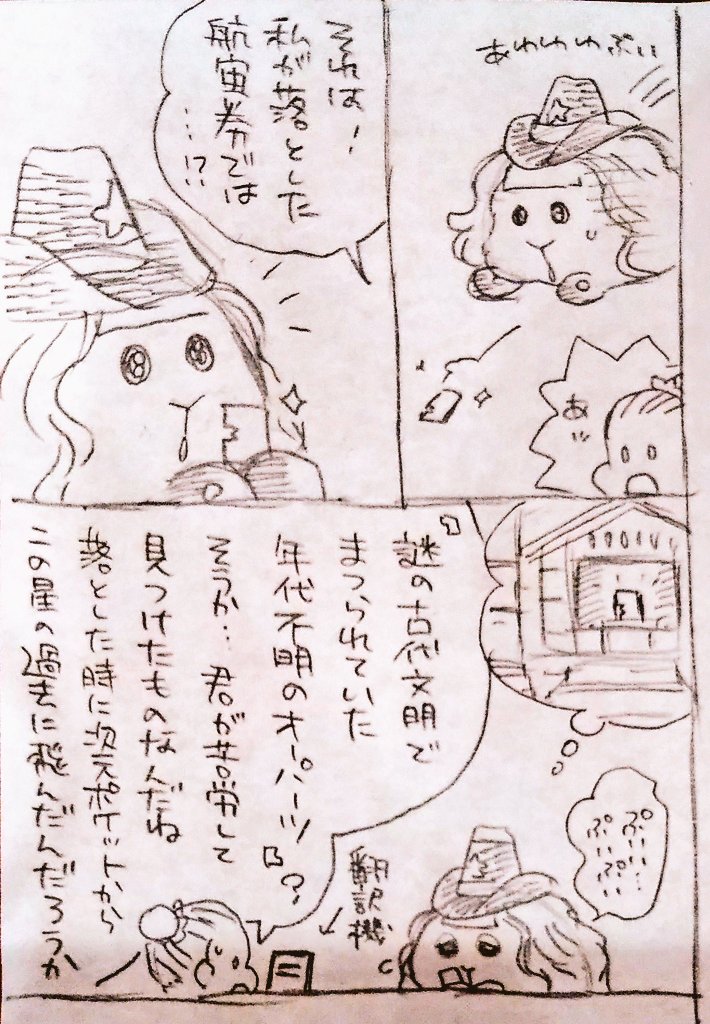 あわわわぷいぃ
あッ
それは！
私が落とした
航宙券では
…!?
ぷい…
ぷいぷい
翻訳機
「謎の古代文明で
まつられていた
年代不明のオーパーツ」？
そうか… 君が苦労して
見つけたものなんだね
落とした時に次元ポケットから
この星の過去に飛んだんだろうか